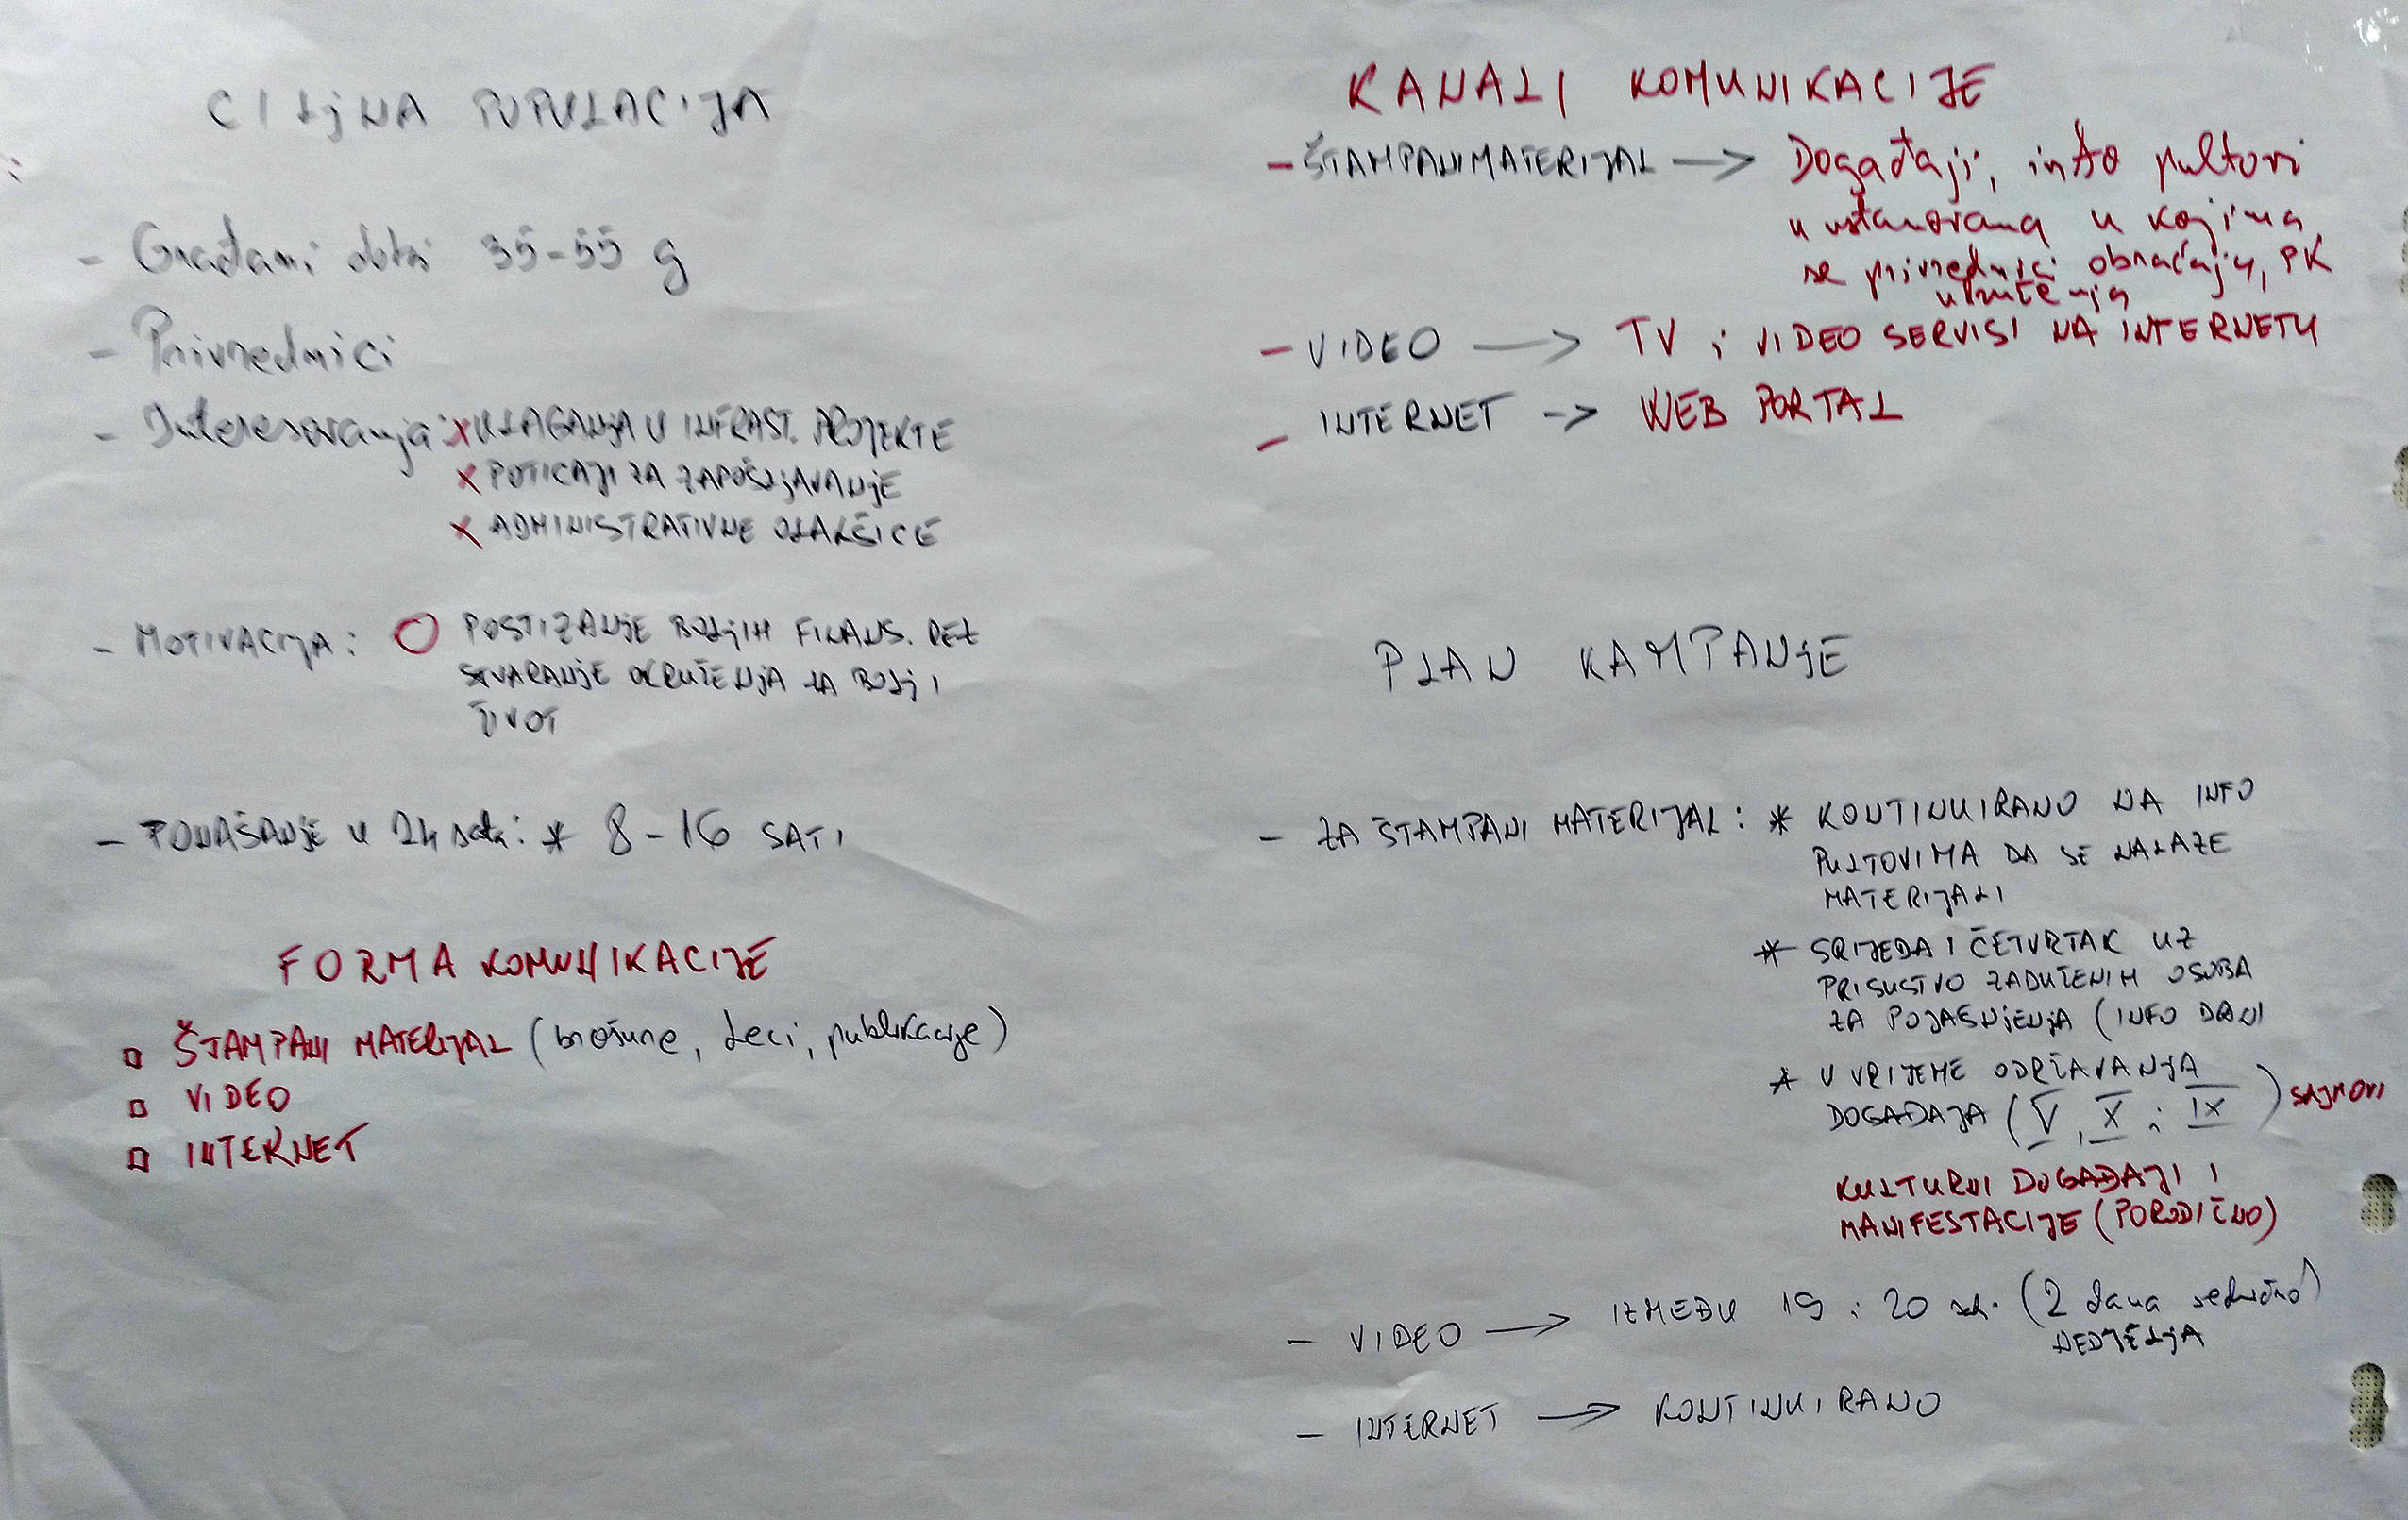 CILjNA POPULACIJA
- Građani dobi 35-55 g
- Privrednici
- Interesovanja: x ULAGANJA U INFRAST. PROJEKTE
x POTICAJI ZA ZAPOŠLjAVANjE
x ADMINISTRATIVNE OLAKŠICE
- MOTIVACIJA: O POSTIZANjE BOLjIH FINANS. REZ
STVARANjE OKRUŽENjA ZA BOLjI
ŽIVOT
- PONAŠANjE U 24 sata: * 8-16 SATI
FORMA KOMUNIKACIJE
▫ ŠTAMPANI MATERIJAL (brošure, Leci, publikacije)
▫ VIDEO
▫ INTERNET
KANALI KOMUNIKACIJE
- ŠTAMPANI MATERIJAL → Događaji, info pultovi
u ustanovama u kojima
se privrednici obraćaju, PK
udruženja
- VIDEO → TV i VIDEO SERVISI NA INTERNETU
- INTERNET -> WEB PORTAL
PLAN KAMPANjE
- ZA ŠTAMPANI MATERIJAL: * KONTINUIRANO NA INFO
PULTOVIMA DA SE NALAZE
MATERIJALI
* SRIJEDA I ČETVRTAK UZ
PRISUSTVO ZADUŽENIH OSOBA
ZA POJAŠNjENjA (INFO DANI
* U VRIJEME ODRŽAVANJA
DOGAĐAJA (V, X i IX) SAJMOVI
KULTURNI DOGAĐAJI I
MANIFESTACIJE (PORODIČNO)
- VIDEO → IZMEĐU 19 i 20 sati (2 dana sedmično)
NEDJELjA
- INTERNET → KONTINUIRANO